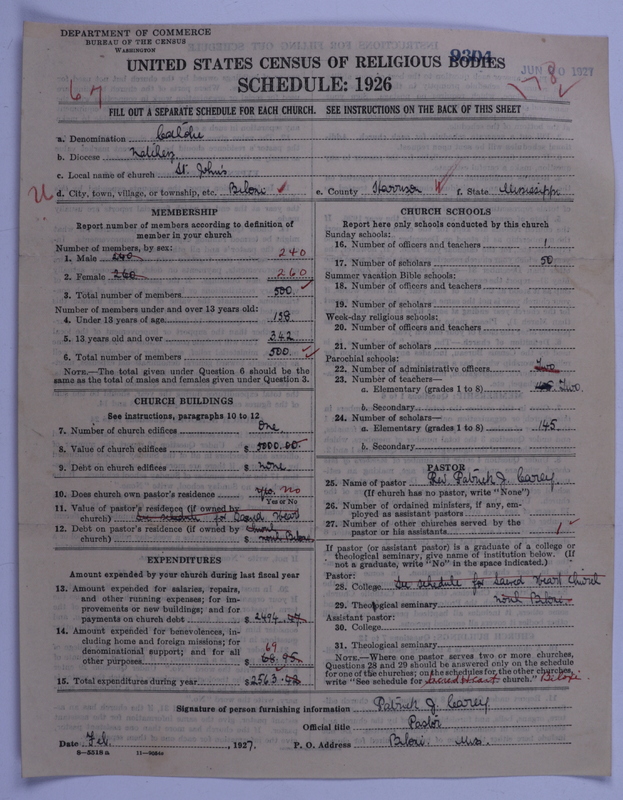 DEPARTMENT OF COMMERCE
BUREAU OF THE CENSUS
WASHINGTON
9304
JUN 20 1927
UNITED STATES CENSUS OF RELIGIOUS BODIES
SCHEDULE: 1926
67
178
FILL OUT A SEPARATE SCHEDULE FOR EACH CHURCH. SEE INSTRUCTIONS ON THE BACK OF THIS SHEET
a. Denomination
b. Diocese Natchez
c. Local name of church St. John's
d. City, town, village, or township, etc. Biloxi e. County Harrison f. State Mississippi
MEMBERSHIP
Report number of members according to definition of
member in your church
Number of members, by sex:
1. Male 240 240
2. Female 260 260
3. Total number of members 500
Number of members under and over 13 years old:
4. Under 13 years of age 158
5. 13 years old and over 342
6. Total number of members 500
NOTE.—The total given under Question 6 should be the
same as the total of males and females given under Question 3.
CHURCH BUILDINGS
See instructions, paragraphs 10 to 12
7. Number of church edifices One
8. Value of church edifices $ 5000.00
9. Debt on church edifices $ none
10. Does church own pastor's residence Yes. No
Yes or No
11. Value of pastor's residence (if owned by
church) See schedule for Sacred Heart
12. Debt on pastor's residence (if owned by Church
church) $ North Biloxi
EXPENDITURES
Amount expended by your church during last fiscal year
13. Amount expended for salaries, repairs,
and other running expenses; for im-
provements or new buildings; and for
payments on church debt $ 2494.
14. Amount expended for benevolences, in-
cluding home and foreign missions; for
denominational support; and for all 69
other purposes $ 68.95
15. Total expenditures during year $ 2563.
CHURCH SCHOOLS
Report here only schools conducted by this church
Sunday schools:
16. Number of officers and teachers 1
17. Number of scholars 50
Summer vacation Bible schools:
18. Number of officers and teachers
19. Number of scholars
Week-day religious schools:
20. Number of officers and teachers
21. Number of scholars
Parochial schools:
22. Number of administrative officers Two
23. Number of teachers—
a. Elementary (grades 1 to 8) Two
b. Secondary
24. Number of scholars—
a. Elementary (grades 1 to 8) 145
b. Secondary
PASTOR
25. Name of pastor Rev. Patrick J. Carey
(If church has no pastor, write "None")
26. Number of ordained ministers, if any, em-
ployed as assistant pastors
27. Number of other churches served by the
pastor or his assistants 1
If pastor (or assistant pastor) is a graduate of a college or
theological seminary, give name of institution below. (If
not a graduate, write "No" in the space indicated.)
Pastor:
28. College See schedule for Sacred Heart Church
29. Theological seminary North Biloxi
Assistant pastor:
30. College
31. Theological seminary
NOTE.—Where one pastor serves two or more churches,
Questions 28 and 29 should be answered only on the schedule
for one of the churches; on the schedules for the other churches,
write "See schedule for Sacred Heart church." Biloxi.
Signature of person furnishing information Patrick J. Carey
Official title Pastor
Date Feb. , 1927. P. O. Address Biloxi. Miss.
8—5518a 11—9084a